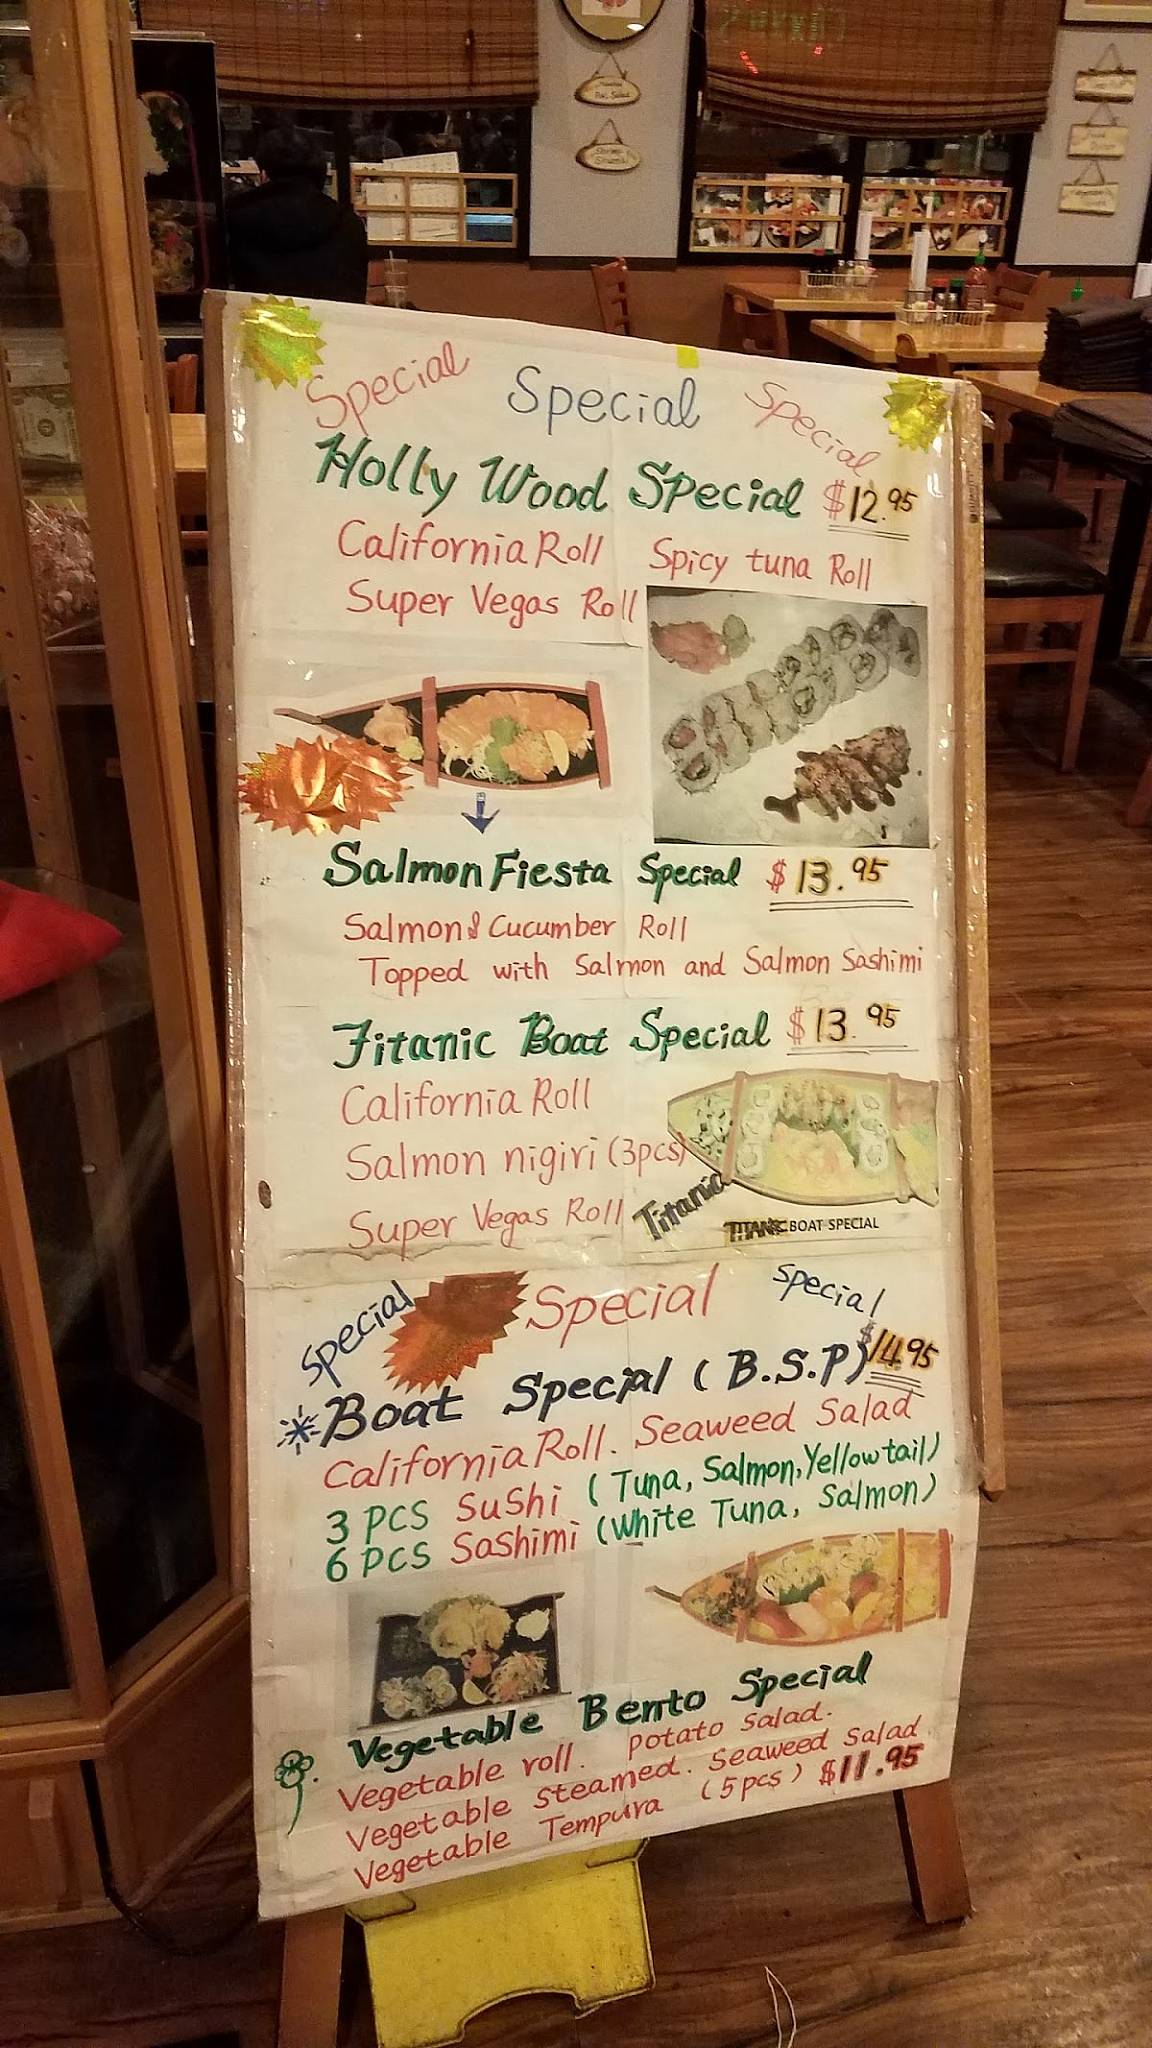 Special Special Special
Holly Wood Special $12.95
California Roll Spicy tuna Roll
Super Vegas Roll
Salmon Fiesta Special $13.95
Salmon & Cucumber Roll
Topped with Salmon and Salmon Sashimi
Titanic Boat Special $13.95
California Roll
Salmon nigiri (3pcs)
Super Vegas Roll
Titanic
TITANIC BOAT SPECIAL
Special Special Special
Boat Special (B.S.P) $14.95
California Roll. Seaweed Salad
3 PCS Sushi (Tuna, Salmon, Yellowtail)
6 PCS Sashimi (White Tuna, Salmon)
Vegetable Bento Special
Vegetable roll. potato salad.
Vegetable steamed. Seaweed Salad
Vegetable Tempura (5pcs) $11.95